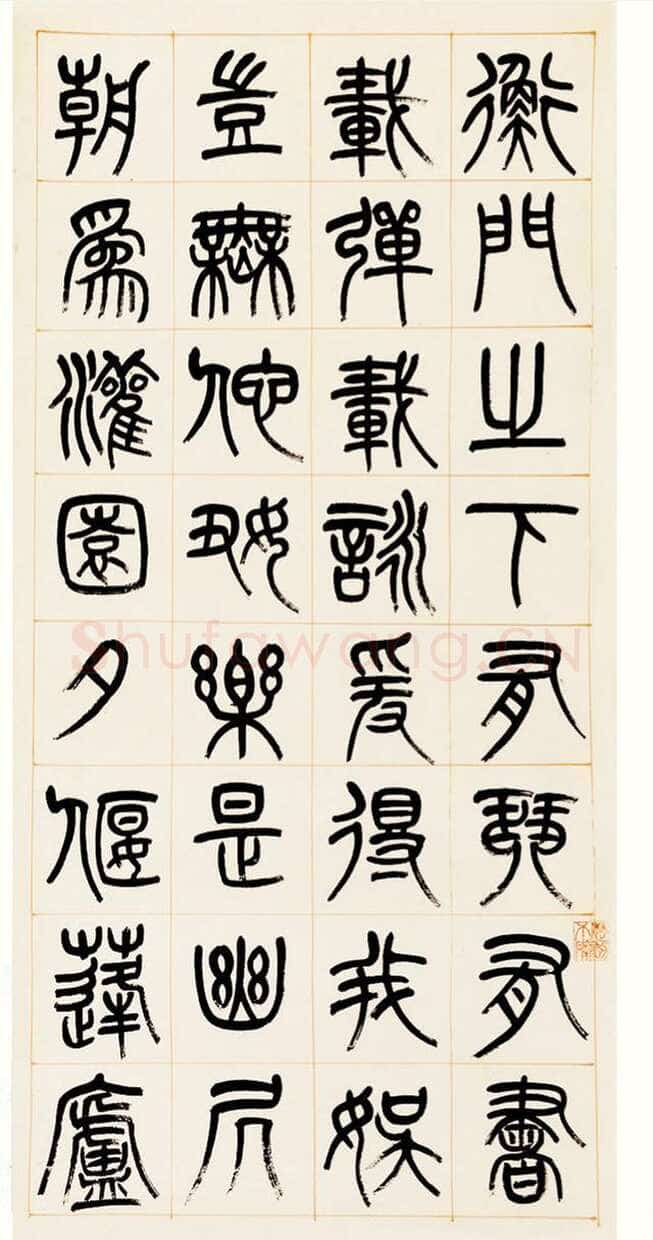 衡門之下有琴有書
載彈載詠爰得我娛
豈無他好樂是幽居
朝為灌園夕偃蓬廬
Shufawang.CN